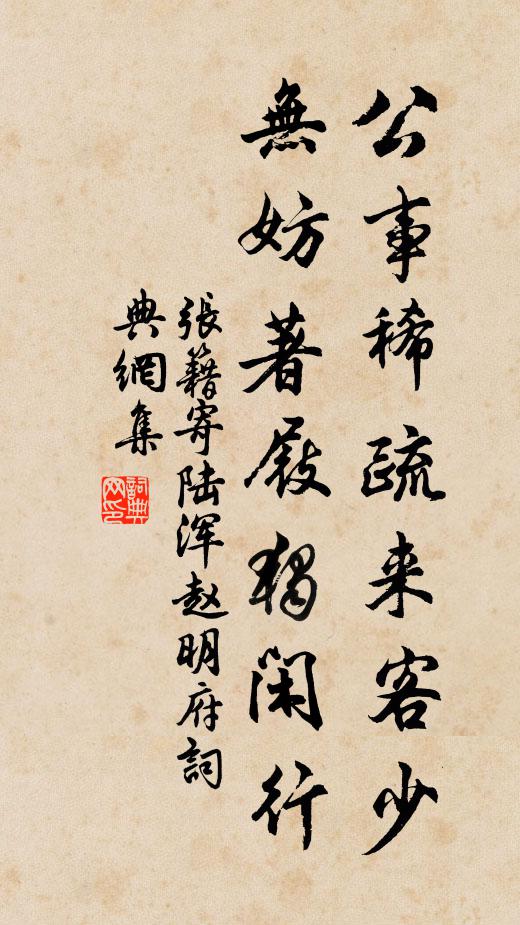 公事稀疏来客少
無妨著屐獨閑行
張籍寄陆浑赵明府詞
典網集
詞典網印